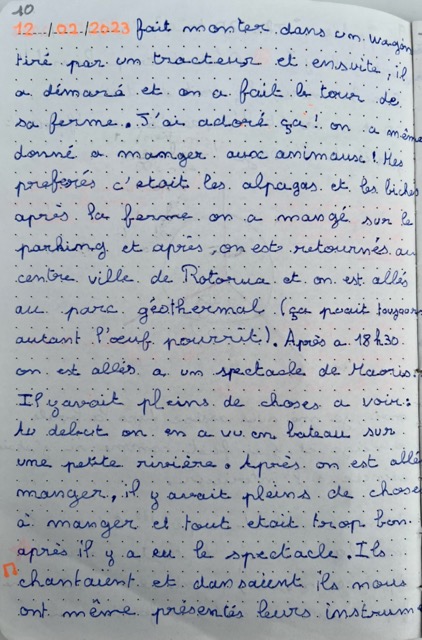 10
12/02/2023 fait monter dans un wagon
tiré par un tracteur et ensuite, il
a démaré et on a fait le tour de
sa ferme. J'ai adoré ça! on a même
donné a manger aux animaux! Mes
preferés c'etait les alpagas et les biches
après la ferme on a mangé sur le
parking et après, on est retournés au
centre ville de Rotorua et on est allés
au parc géothermal (ça puait toujours
autant l'œuf pourrit). Après a 18h30
on est allés a un spectacle de Maoris.
Il y avait pleins de choses a voir:
Au debut on en a vu en bateau sur
une petite rivière. Après on est allé
manger, il y avait pleins de chose
à manger et tout etait trop bon.
après il y a eu le spectacle. Ils
chantaient et dansaient ils nous
ont même présentés leurs instrum